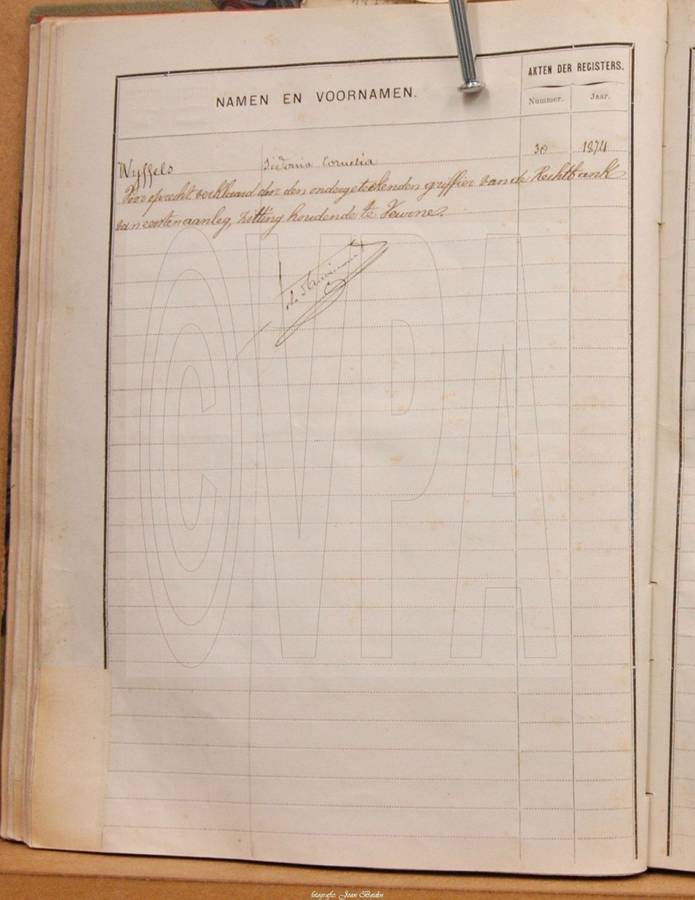 NAMEN EN VOORNAMEN.
AKTEN DER REGISTERS.
Nummer. Jaar.
Wyffels Sidonia Cornelia 30 1874
Voor oprecht verklaard door den ondergeteekenden griffier van de Rechtbank
van eersten aanleg, zitting houdende te Veurne
©VPA
fotografie: Johan